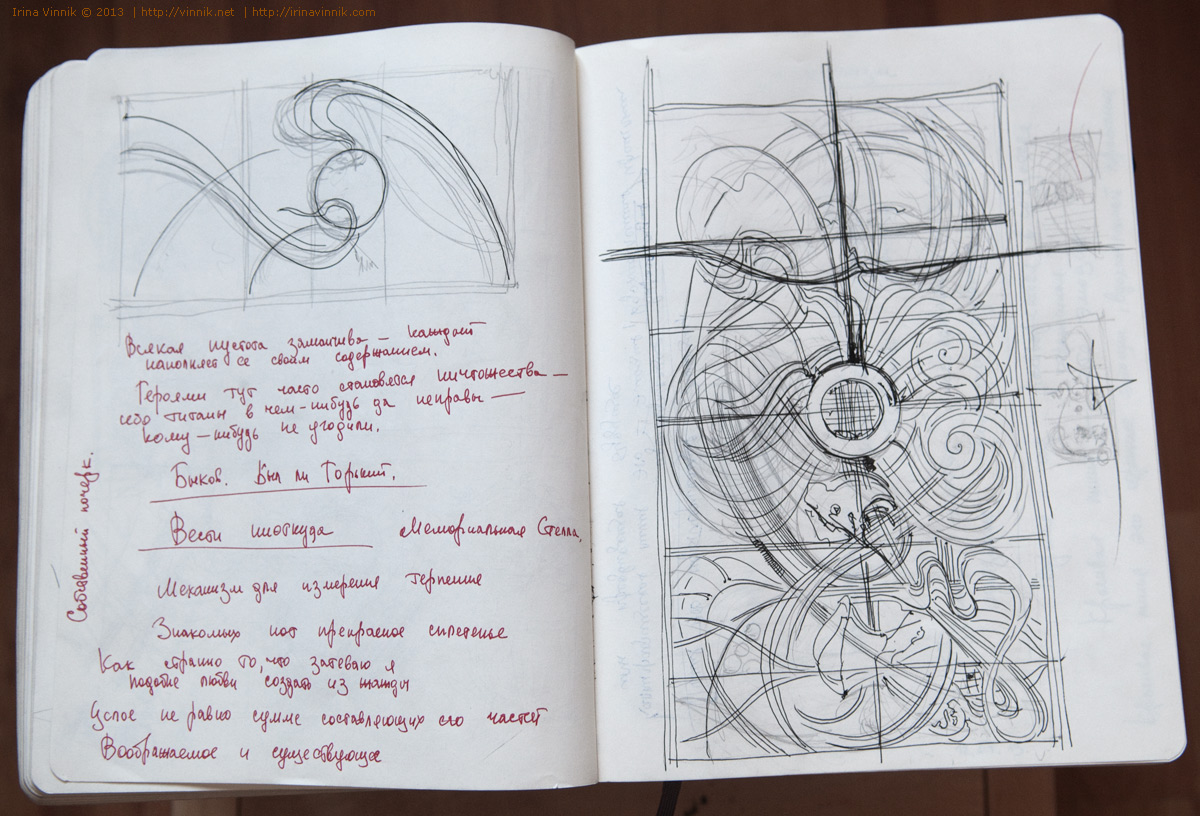 Irina Vinnik © 2013 | http://vinnik.net | http://irinavinnik.com
Всякая пустота заманчива — каждый
наполняет ее своим содержанием.
Героями тут часто становятся ничтожества —
ибо титаны в чем-нибудь да неправы —
кому-нибудь не угодили.
Быков. Был ли Горький.
Вести ниоткуда Мемориальная Стелла.
Механизм для измерения терпения
Знакомых нот прекрасное сплетенье
Как странно то, что затеваю я
подобие любви создать из жажды
Целое не равно сумме составляющих его частей
Воображаемое и существующее
Собственный почерк.